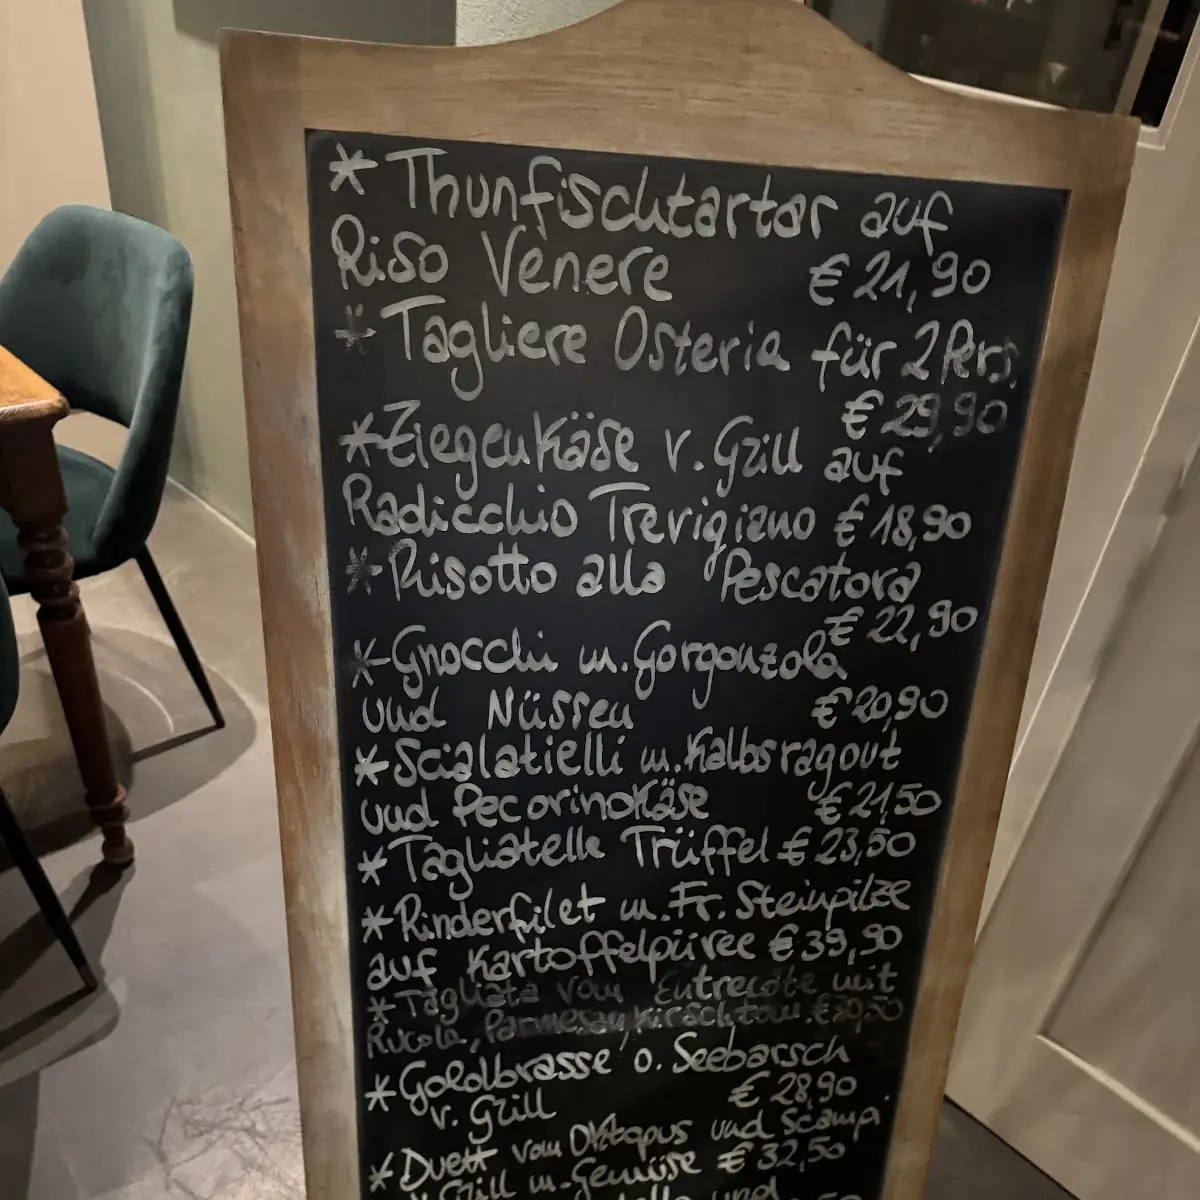 * Thunfischtartar auf
Riso Venere € 21,90
* Tagliere Osteria für 2 Pers.
€ 29,90
* Ziegenkäse v. Grill auf
Radicchio Trevigiano € 18,90
* Risotto alla Pescatora
€ 22,90
* Gnocchi m. Gorgonzola
und Nüssen € 20,90
* Scialatielli m. Kalbsragout
und Pecorinokäse € 21,50
* Tagliatelle Trüffel € 23,50
* Rinderfilet m. Fr. Steinpilze
auf Kartoffelpüree € 39,90
* Tagliata vom Entrecôte mit
Rucola, Parmesan, Kirschtom.
* Goldbrasse o. Seebarsch
v. Grill € 28,90
* Duett vom Oktopus und Scampi
v. Grill m. Gemüse € 32,50
und